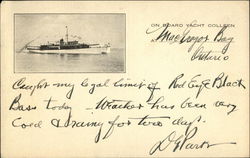 ON BOARD YACHT COLLEEN
AT MacGregor Bay
Ontario
Caught my legal limit of Red Eye Black
Bass today - Weather has been very
Cold & rainy for two days.